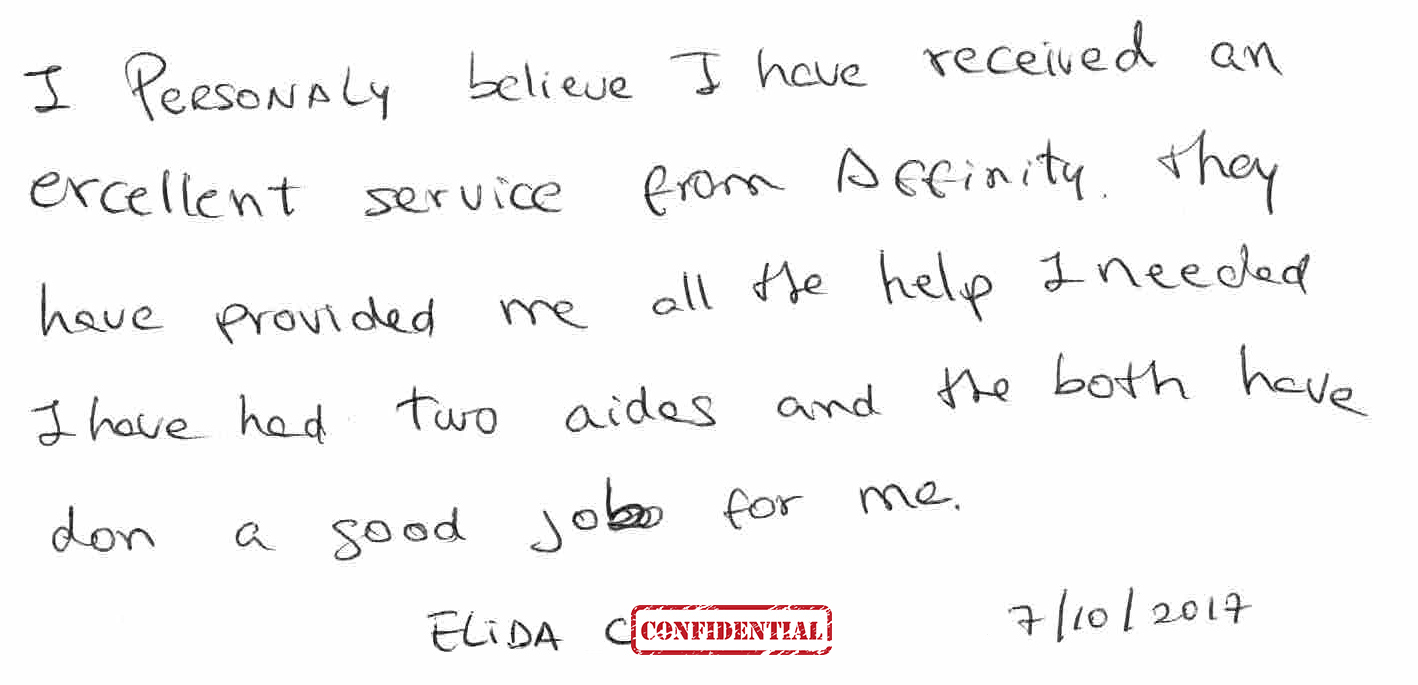 I PERSONALY believe I have received an
excellent service from Affinity. they
have provided me all the help I needed
I have had two aides and the both have
don a good job for me.
ELiDA C CONFIDENTIAL 7/10/2017